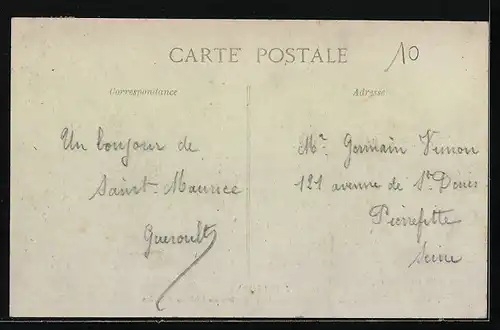 CARTE POSTALE
10
Correspondance
Adresse
Un bonjour de
Saint-Maurice
Gueroult
Mr. Germain Vimon
121 avenue de St Denis
Pierrefitte
Seine